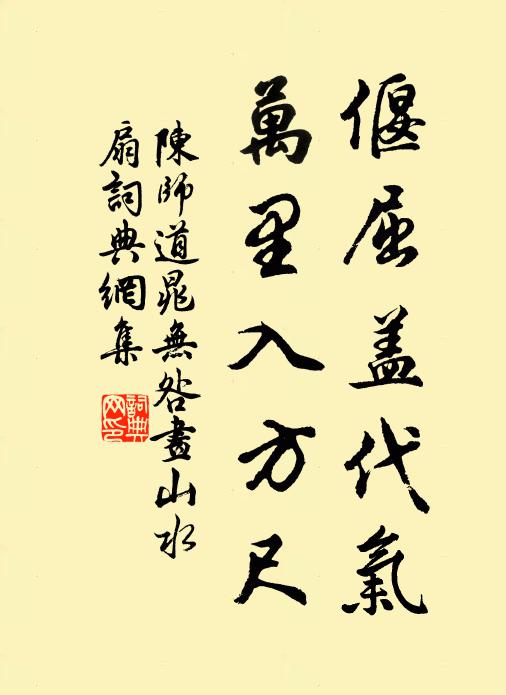 偃屈盖代氣
萬里入方尺
陳師道晁無咎畫山水
扇詞典網集
詞典
网印